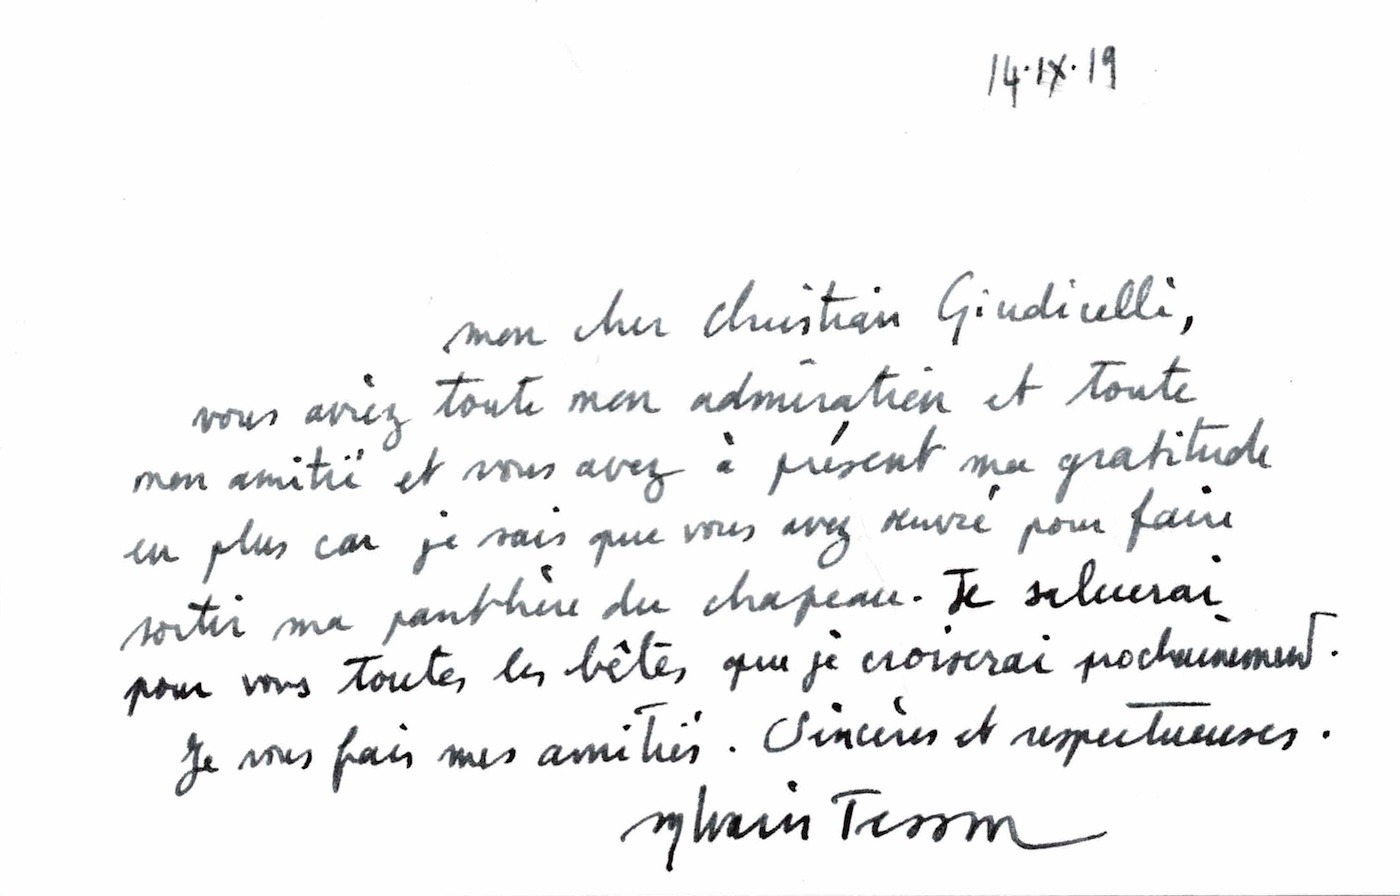 14.IX.19
mon cher Christian Giudicelli,
vous aviez toute mon admiration et toute
mon amitié et vous avez à présent ma gratitude
en plus car je sais que vous avez œuvré pour faire
sortir ma panthère du chapeau. Je saluerai
pour vous toutes les bêtes que je croiserai prochainement.
Je vous fais mes amitiés. Sincères et respectueuses.
Sylvain Tesson